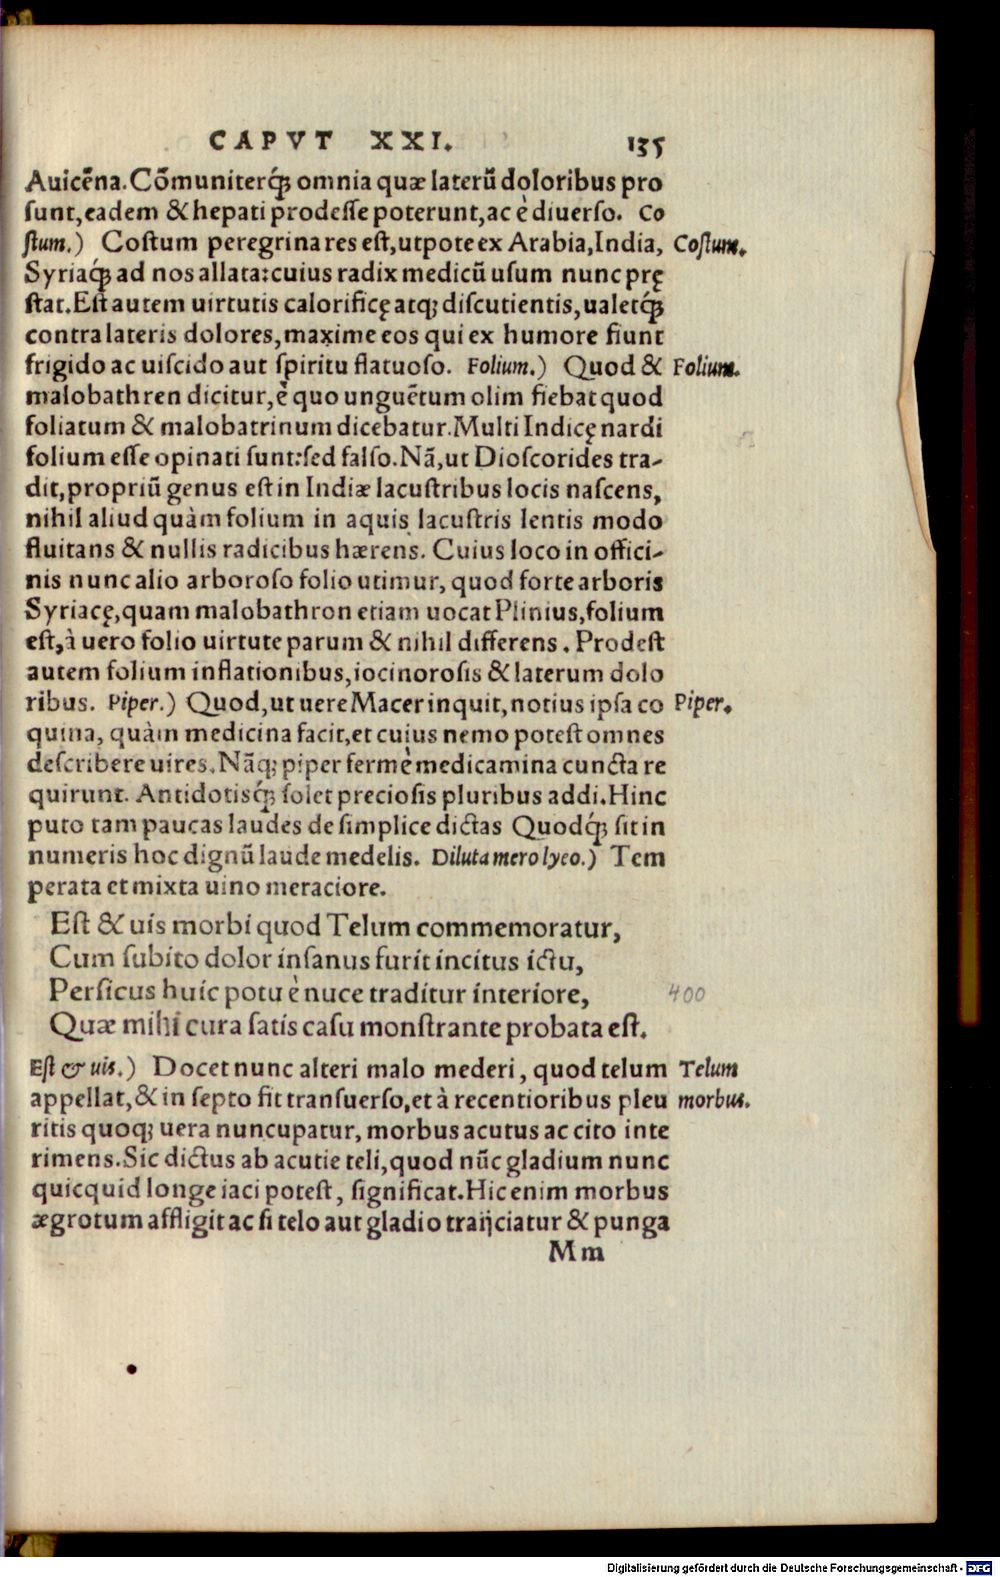 CAPVT XXI. 135
Auicēna. Cōmuniterq́ꝫ omnia quæ laterū doloribus pro
sunt, eadem & hepati prodesse poterunt, ac è diuerso. Co
stum.) Costum peregrina res est, utpote ex Arabia, India, Costum.
Syriaq́ꝫ ad nos allata: cuius radix medicū usum nunc prę
stat. Est autem uirtutis calorificę atqꝫ discutientis, ualetq́ꝫ
contra lateris dolores, maxime eos qui ex humore fiunt
frigido ac uiscido aut spiritu flatuoso. Folium.) Quod & Folium.
malobathren dicitur, è quo unguētum olim fiebat quod
foliatum & malobatrinum dicebatur. Multi Indicę nardi
folium esse opinati sunt: sed falso. Nā, ut Dioscorides tra-
dit, propriū genus est in Indiæ lacustribus locis nascens,
nihil aliud quàm folium in aquis lacustris lentis modo
fluitans & nullis radicibus hærens. Cuius loco in offici-
nis nunc alio arboroso folio utimur, quod forte arboris
Syriacę, quam malobathron etiam uocat Plinius, folium
est, à uero folio uirtute parum & nihil differens. Prodest
autem folium inflationibus, iocinorosis & laterum dolo
ribus. Piper.) Quod, ut uere Macer inquit, notius ipsa co Piper.
quina, quàm medicina facit, et cuius nemo potest omnes
describere uires. Nāqꝫ piper fermè medicamina cuncta re
quirunt. Antidotisq́ꝫ solet preciosis pluribus addi. Hinc
puto tam paucas laudes de simplice dictas Quodq́ꝫ sit in
numeris hoc dignū laude medelis. Diluta mero lyæo.) Tem
perata et mixta uino meraciore.
Est & uis morbi quod Telum commemoratur,
Cum subito dolor insanus furit incitus ictu,
Persicus huic potu è nuce traditur interiore, 400
Quæ mihi cura satis casu monstrante probata est.
Est & uis.) Docet nunc alteri malo mederi, quod telum Telum
appellat, & in septo fit transuerso, et à recentioribus pleu morbus.
ritis quoqꝫ uera nuncupatur, morbus acutus ac cito inte
rimens. Sic dictus ab acutie teli, quod nūc gladium nunc
quicquid longe iaci potest, significat. Hic enim morbus
ægrotum affligit ac si telo aut gladio traijciatur & punga
Mm
Digitalisierung gefördert durch die Deutsche Forschungsgemeinschaft - DFG